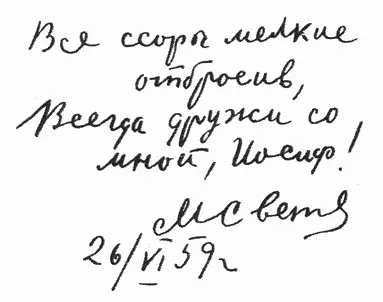 Все ссоры мелкие
отбросив,
Всегда дружи со
мной, Иосиф!
МСветл
26/VI 59 г